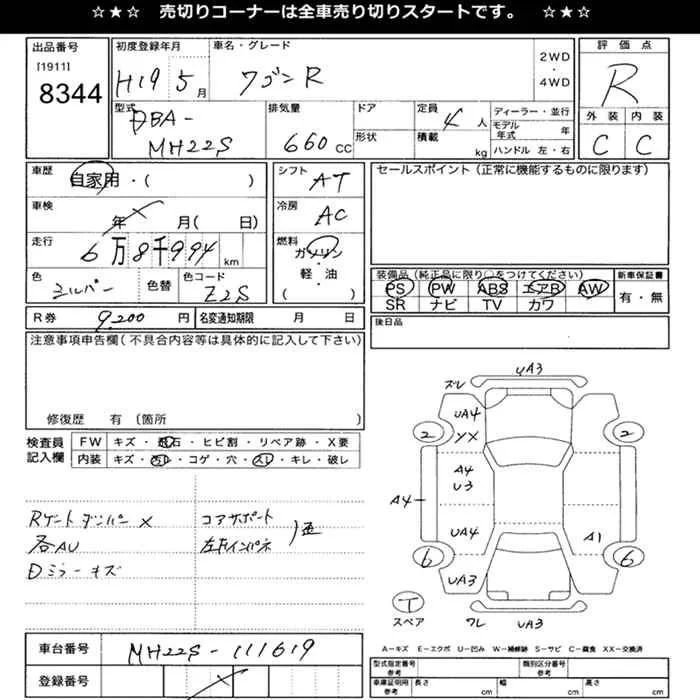 ☆★☆ 売切りコーナーは全車売り切りスタートです。 ☆★☆
出品番号
[1911]
8344
初度登録年月
H19 5月
車名・グレード
ワゴンR
2WD
・
4WD
評価点
R
外装 内装
C C
型式
DBA-
MH22S
排気量
660 CC
ドア
形状
定員
4人
積載
kg
ディーラー・並行
モデル年式 年
ハンドル 左・右
車歴
自家用・( )
車検
年 月( 日)
走行
6万8千994km
色
シルバー
色替
色コード
Z2S
シフト
AT
冷房
AC
燃料
ガソリン・
軽・油
( )
セールスポイント(正常に機能するものに限ります)
装備品(純正品に限り○をつけてください)
PS PW ABS エアB AW
SR ナビ TV カワ
新車保証書
有・無
R券 9,200円
名変通知期限 月 日
後日品
注意事項申告欄(不具合内容等は具体的に記入して下さい)
修復歴 有 (箇所
検査員
記入欄
FW キズ・飛石・ヒビ割・リペア跡・X要
内装 キズ・汚レ・コゲ・穴・スレ・キレ・破レ
Rゲートダンパー X
各AU
Dミラーキズ
コアサポート
左Fインパネ
車台番号
MH22S-111619
登録番号
ズレ
UA3
UA4
XX
2
2
A4
U3
A4
UA4
A1
6
6
UA3
T
スペア
ワレ
UA3
A-キズ E-エクボ U-凹み W-補修跡 S-サビ C-腐食 XX-交換済
型式指定番号
参考
類別区分番号
参考
車庫証明用
参考
長さ cm
幅 cm
高さ cm